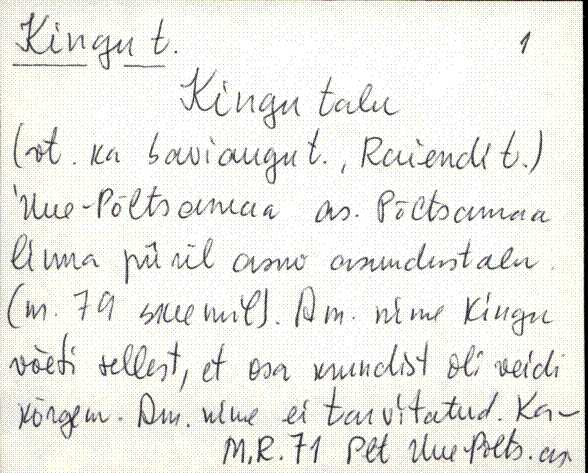 Kingu t. 1
Kingu talu
(vt. ka Saviaugu t., Raiendi t.)
Uue-Põltsamaa as. Põltsamaa
linna piiril asuv asundustalu.
(nr. 79 skeemil). Am. nime Kingu
võeti sellest, et osa krundist oli veidi
kõrgem. Am. nime ei tarvitatud. Ka-
M.R. 71 Plt Uue-Põlts. as.